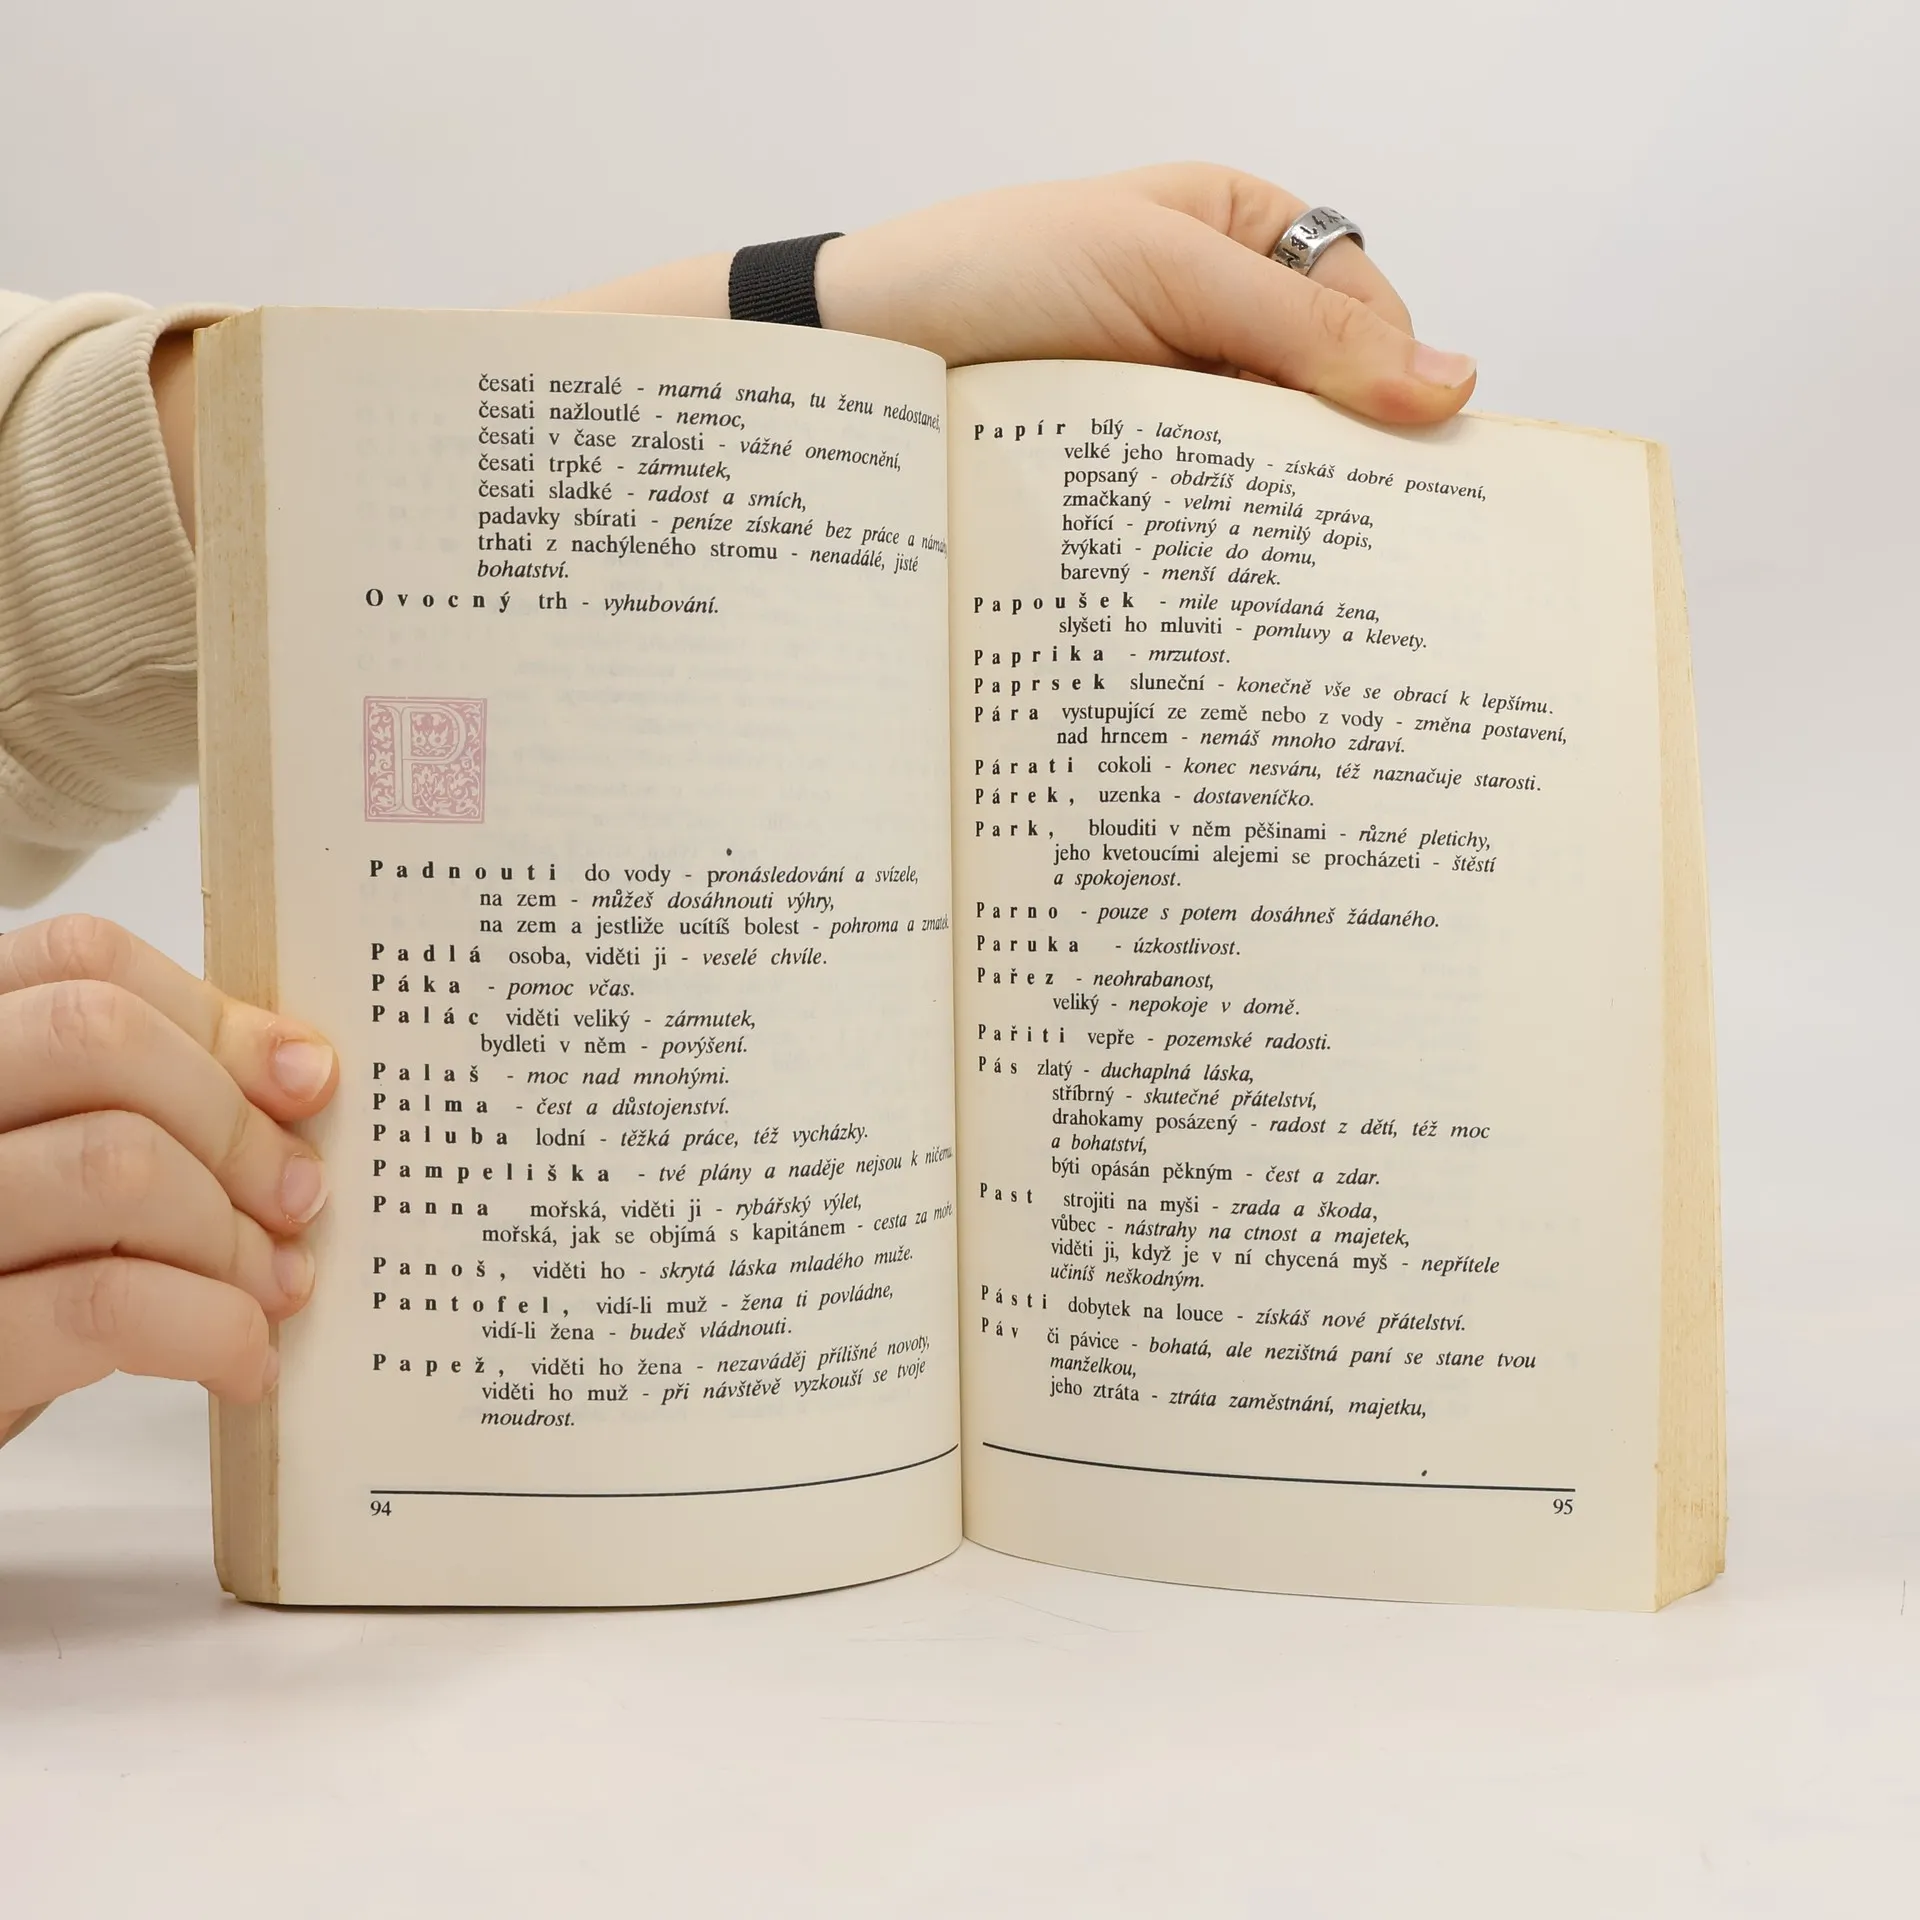 česati nezralé - marná snaha, tu ženu nedostaneš,
česati nažloutlé - nemoc,
česati v čase zralosti - vážné onemocnění,
česati trpké - zármutek,
česati sladké - radost a smích,
padavky sbírati - peníze získané bez práce a
trhati z nachýleného stromu - nenadálé, jisté
bohatství.
Ovocný trh - vyhubování.
P
Padnouti do vody - pronásledování a svízele,
na zem - můžeš dosáhnouti výhry,
na zem a jestliže ucítíš bolest - pohroma a
Padlá osoba, viděti ji - veselé chvíle.
Páka - pomoc včas.
Palác viděti veliký - zármutek,
bydleti v něm - povýšení.
Palaš - moc nad mnohými.
Palma - čest a důstojenství.
Paluba lodní - těžká práce, též vycházky.
Pampeliška - tvé plány a naděje nejsou k ničemu.
Panna mořská, viděti ji - rybářský výlet,
mořská, jak se objímá s kapitánem - cesta za moře.
Panoš, viděti ho - skrytá láska mladého muže.
Pantofel, vidí-li muž - žena ti povládne,
vidí-li žena - budeš vládnouti.
Papež, viděti ho žena - nezaváděj přílišné novoty,
viděti ho muž - při návštěvě vyzkouší se tvoje
moudrost.
94
Papír bílý - lačnost,
velké jeho hromady - získáš dobré postavení,
popsaný - obdržíš dopis,
zmačkaný - velmi nemilá zpráva,
hořící - protivný a nemilý dopis,
žvýkati - policie do domu,
barevný - menší dárek.
Papoušek - mile upovídaná žena,
slyšeti ho mluviti - pomluvy a klevety.
Paprika - mrzutost.
Paprsek sluneční - konečně vše se obrací k lepšímu.
Pára vystupující ze země nebo z vody - změna postavení,
nad hrncem - nemáš mnoho zdraví.
Párati cokoli - konec nesváru, též naznačuje starosti.
Párek, uzenka - dostaveníčko.
Park, blouditi v něm pěšinami - různé pletichy,
jeho kvetoucími alejemi se procházeti - štěstí
a spokojenost.
Parno - pouze s potem dosáhneš žádaného.
Paruka - úzkostlivost.
Pařez - neohrabanost,
veliký - nepokoje v domě.
Pařiti vepře - pozemské radosti.
Pás zlatý - duchaplná láska,
stříbrný - skutečné přátelství,
drahokamy posázený - radost z dětí, též moc
a bohatství,
býti opásán pěkným - čest a zdar.
Past strojiti na myši - zrada a škoda,
vůbec - nástrahy na ctnost a majetek,
viděti ji, když je v ní chycená myš - nepřítele
učiníš neškodným.
Pásti dobytek na louce - získáš nové přátelství.
Páv či pávice - bohatá, ale nezištná paní se stane tvou
manželkou,
jeho ztráta - ztráta zaměstnání, majetku,
95